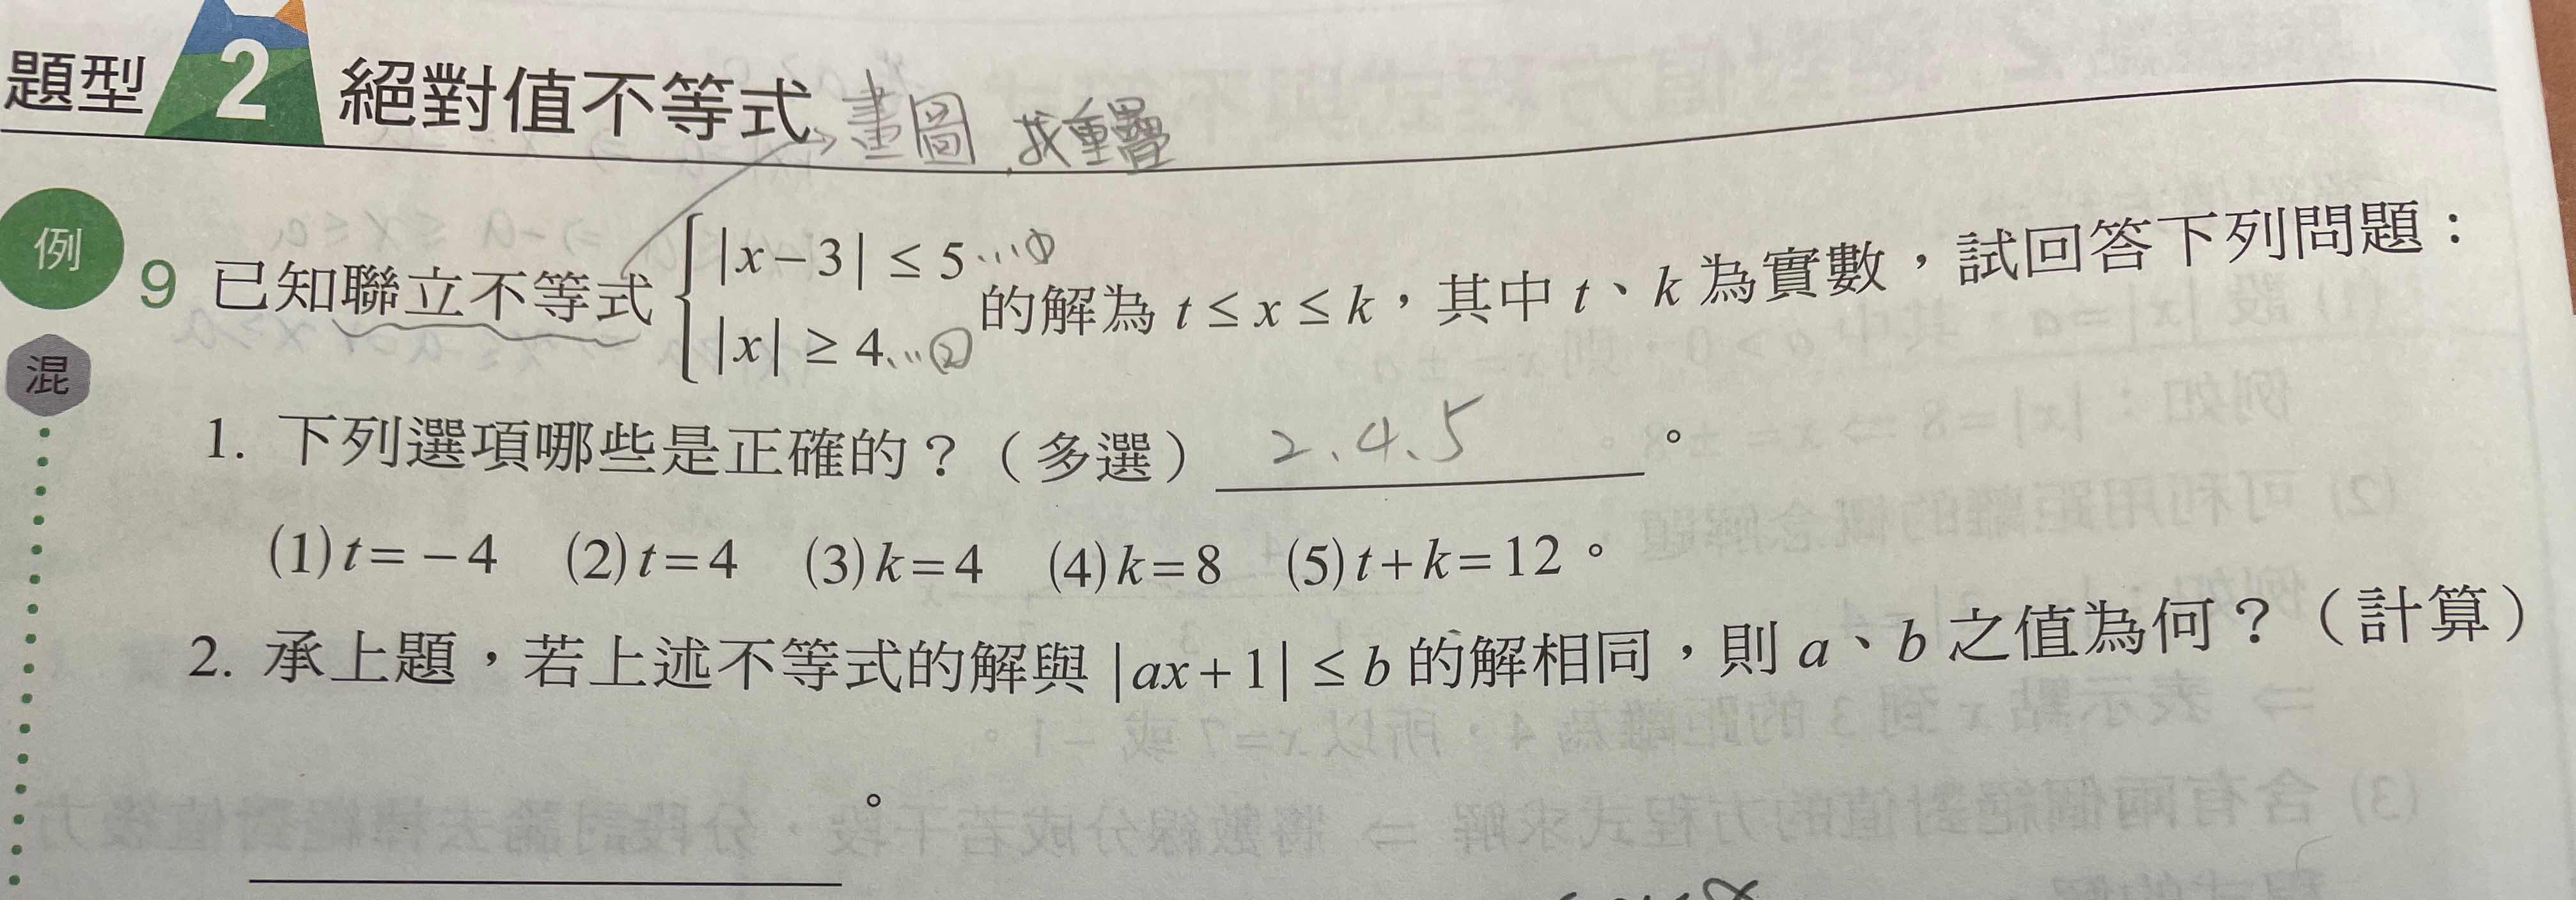 題型 2 絕對值不等式 → 畫圖 找重疊
例 9 已知聯立不等式 { |x-3| ≤ 5 …① |x| ≥ 4 …② 的解為 t ≤ x ≤ k，其中 t、k 為實數，試回答下列問題：
混
1. 下列選項哪些是正確的？（多選）2、4、5。
(1) t=-4 (2) t=4 (3) k=4 (4) k=8 (5) t+k=12。
2. 承上題，若上述不等式的解與 |ax+1| ≤ b 的解相同，則 a、b 之值為何？（計算）
。